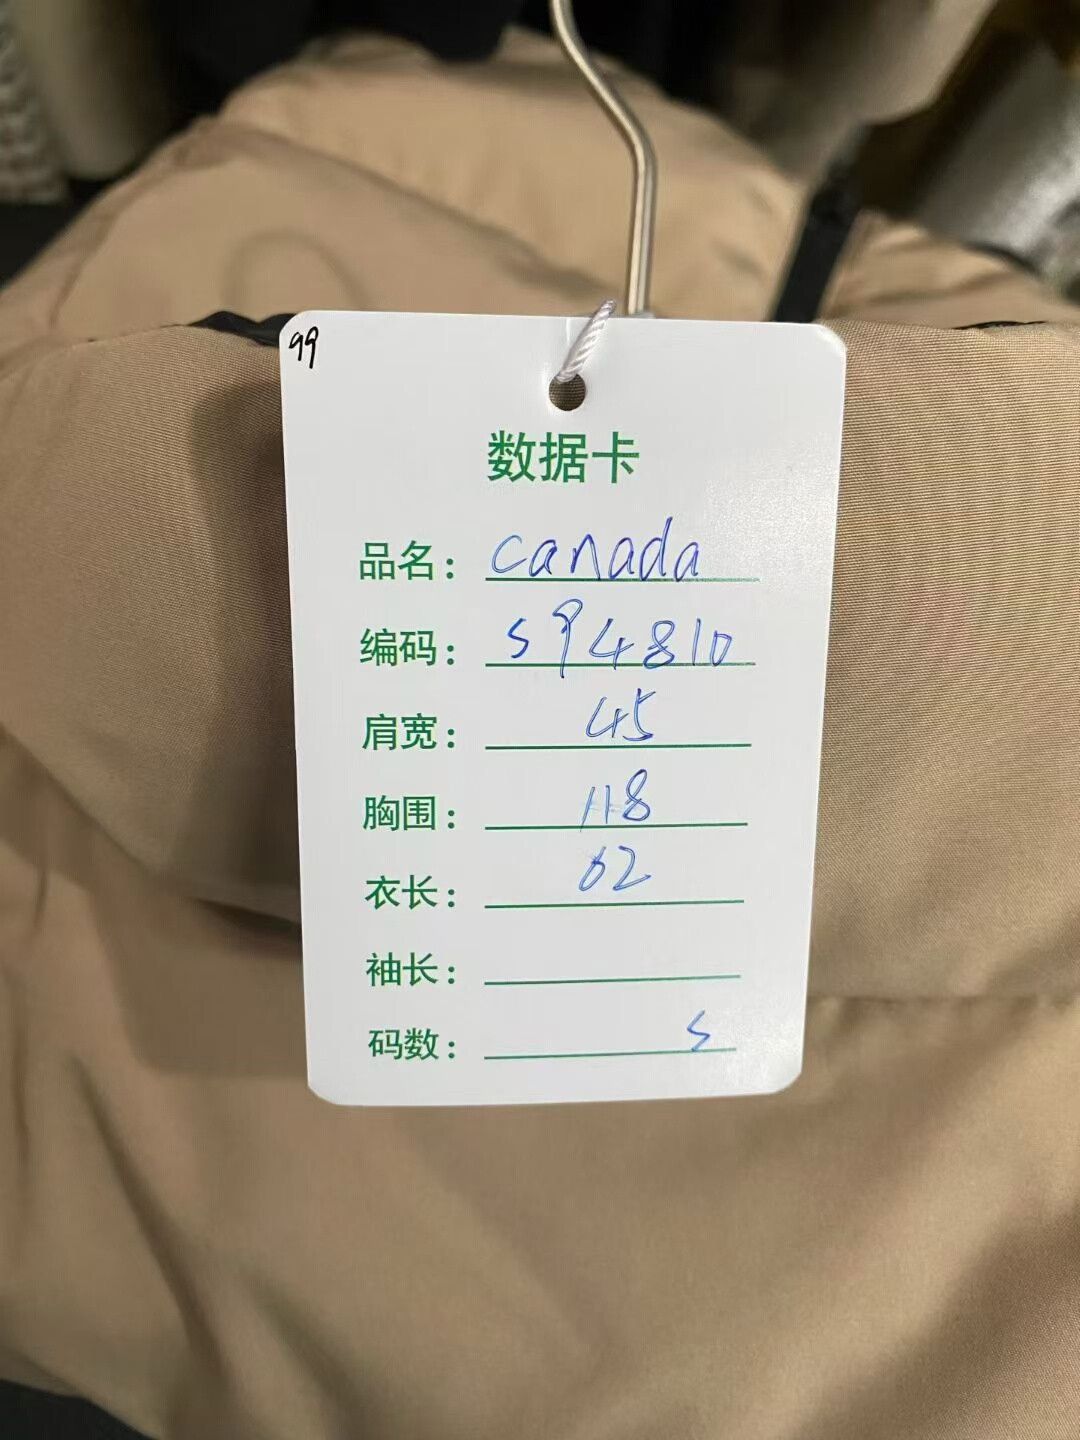 99
数据卡
品名：canada
编码：S94810
肩宽：45
胸围：118
衣长：62
袖长：
码数：S